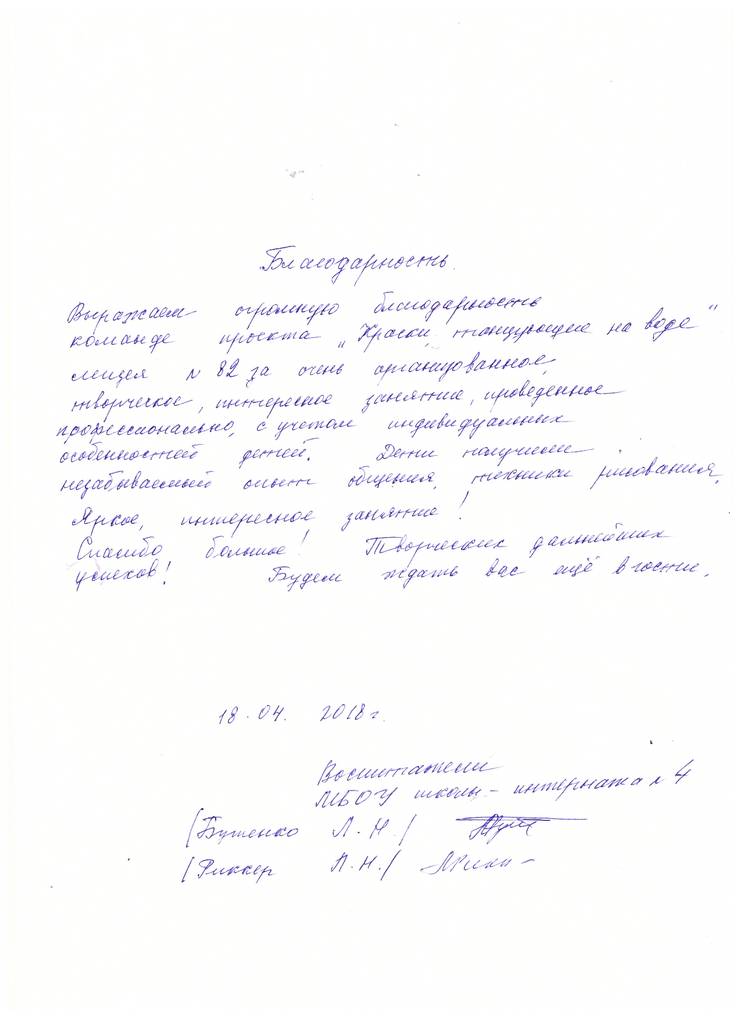 Благодарность.
Выражаем огромную благодарность
команде проекта „Краски, танцующие на воде"
лицея № 82 за очень организованное,
творческое, интересное занятие, проведенное
профессионально, с учетом индивидуальных
особенностей детей. Дети получили
незабываемый опыт общения, техники рисования.
Яркое, интересное занятие!
Спасибо большое! Творческих дальнейших
успехов! Будем ждать вас ещё в гости.
18.04. 2018 г.
Воспитатели
МБОУ школы-интерната № 4
/Бутенко Л.Н./
/Риккер Л.Н./